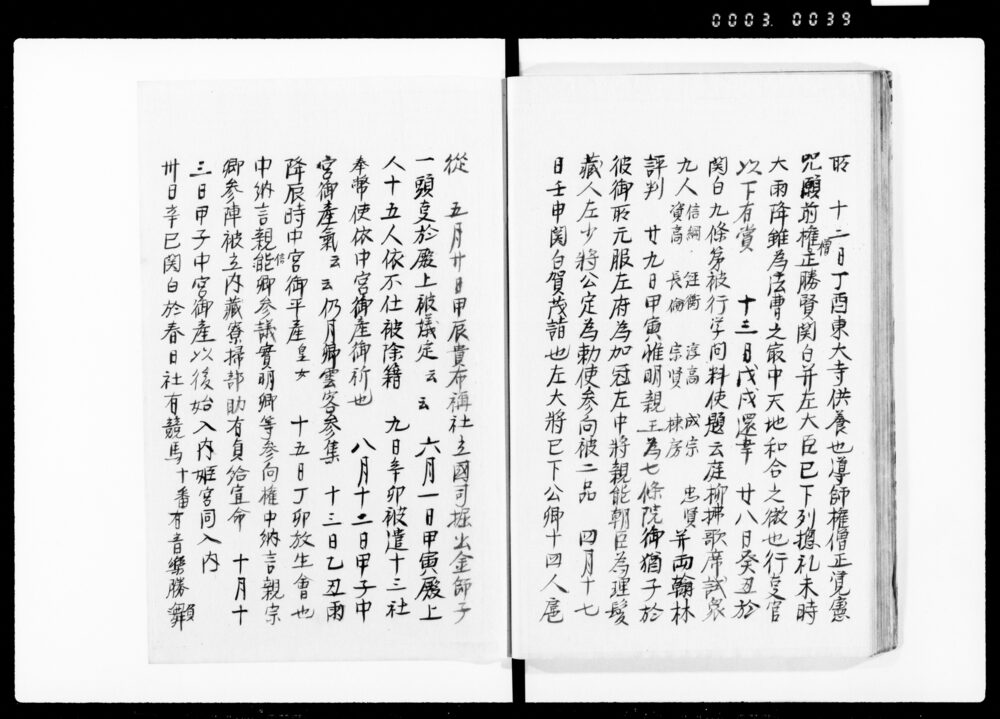 0003 0039
所　十二日丁酉東大寺供養也導師権僧正覚憲
咒願前権僧正勝賢関白并左大臣已下列揔礼未時
大雨降雖為法曹之最中天地和合之徴也行叓官
以下有賞　十三日戊戌還幸　廿八日癸丑於
関白九條第被行学問料使題云庭柳拂歌席試衆
九人信綱　任衡　淳高　成宗　忠賢資高　長倫　宗賢　棟房　并両翰林
評判　廿九日甲寅惟明親王為七條院御猶子於
彼御所元服左府為加冠左中将親能朝臣為理髪
蔵人左少将公定為勅使参向被二品　四月十七
日壬申関白賀茂詣也左大将已下公卿十四人扈
従　五月廿日甲辰貴布祢社立國司掘出金師子
一頭叓於殿上被議定云云　六月一日甲寅殿上
人十五人依不仕被除籍　九日辛卯被遣十三社
奉幣使依中宮御産御祈也　八月十二日甲子中
宮御産氣云云仍月卿雲客参集　十三日乙丑雨
降辰時中宮御平産皇女　十五日丁卯放生會也
中納言親能信卿参議實明卿等参向権中納言親宗
卿参陣被立内蔵寮掃部助有貞給宣命　十月十
三日甲子中宮御産以後始入内姫宮同入内
卅日辛巳関白於春日社有競馬十番有音樂勝負舞